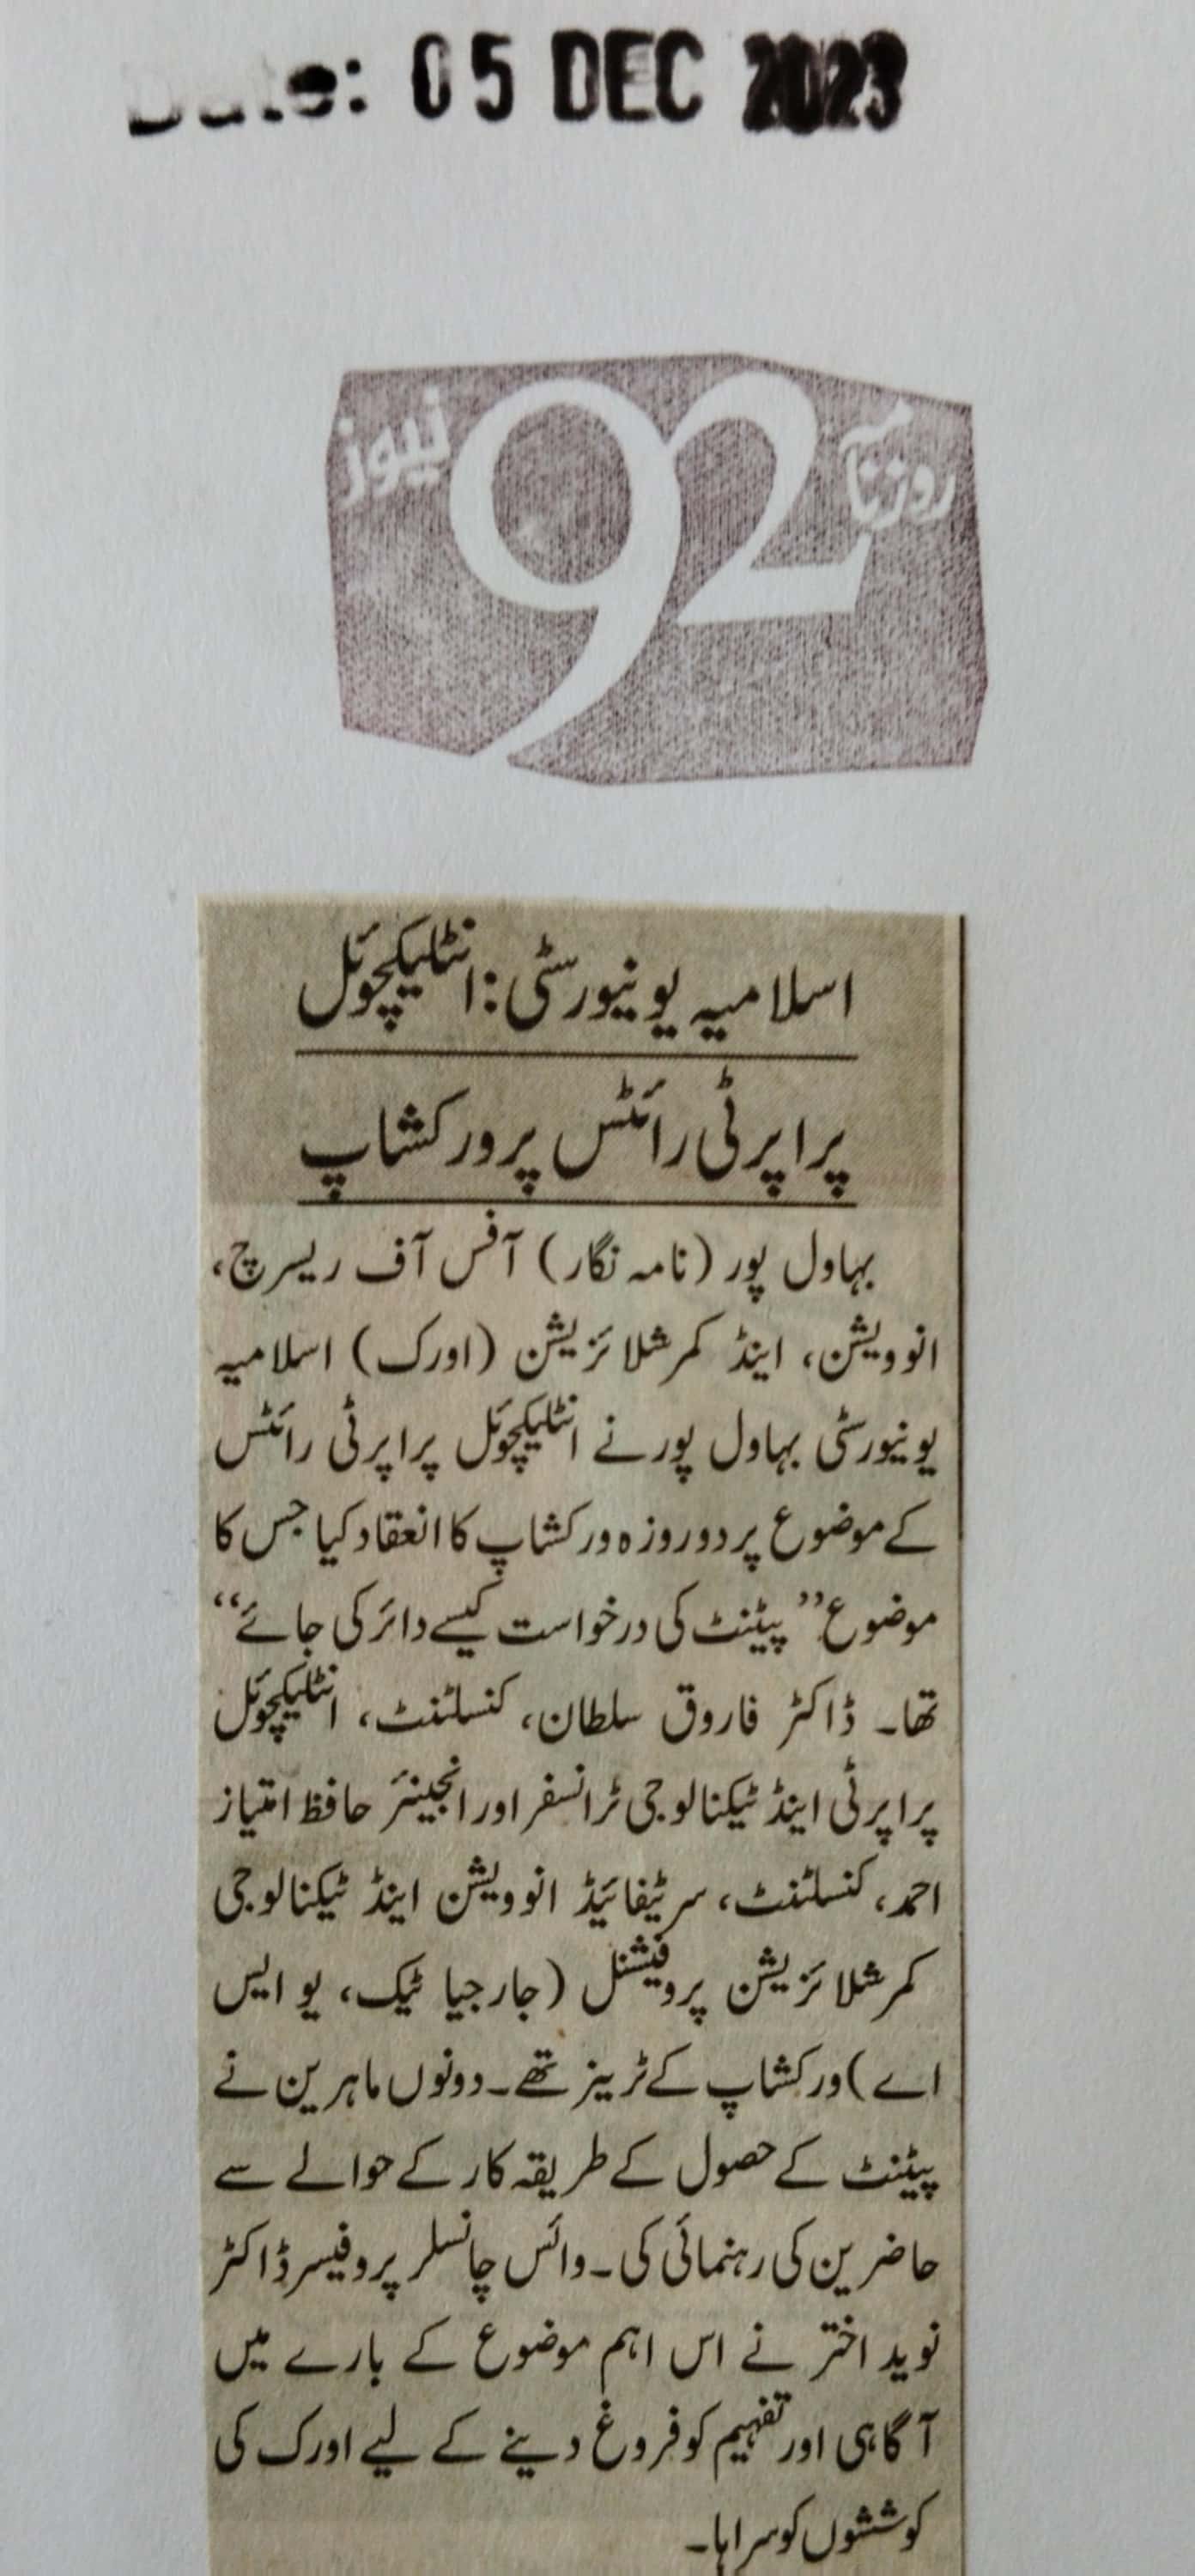 Date: 05 DEC 2023
روزنامہ 92 نیوز
اسلامیہ یونیورسٹی: انٹلیکچوئل
پراپرٹی رائٹس پر ورکشاپ
بہاول پور (نامہ نگار) آفس آف ریسرچ،
انوویشن، اینڈ کمرشلائزیشن (اورک) اسلامیہ
یونیورسٹی بہاول پور نے انٹلیکچوئل پراپرٹی رائٹس
کے موضوع پر دو روزہ ورکشاپ کا انعقاد کیا جس کا
موضوع ’’پیٹنٹ کی درخواست کیسے دائر کی جائے‘‘
تھا۔ ڈاکٹر فاروق سلطان، کنسلٹنٹ، انٹلیکچوئل
پراپرٹی اینڈ ٹیکنالوجی ٹرانسفر اور انجینئر حافظ امتیاز
احمد، کنسلٹنٹ، سرٹیفائیڈ انوویشن اینڈ ٹیکنالوجی
کمرشلائزیشن پروفیشنل (جارجیا ٹیک، یو ایس
اے) ورکشاپ کے ٹرینز تھے۔ دونوں ماہرین نے
پیٹنٹ کے حصول کے طریقہ کار کے حوالے سے
حاضرین کی رہنمائی کی۔ وائس چانسلر پروفیسر ڈاکٹر
نوید اختر نے اس اہم موضوع کے بارے میں
آگاہی اور تفہیم کو فروغ دینے کے لیے اورک کی
کوششوں کو سراہا۔